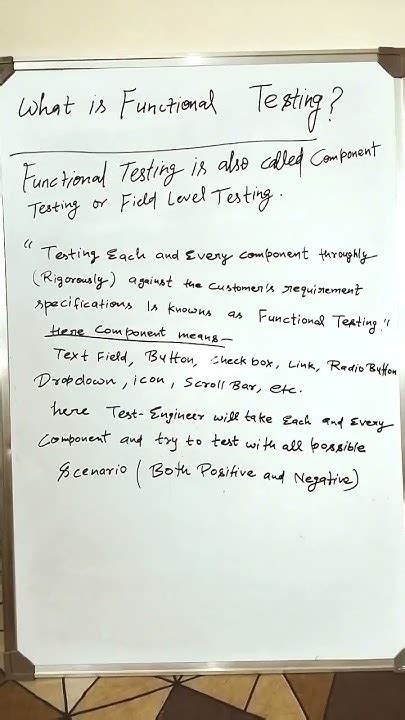 What is Functional Testing?
Functional Testing is also called Component
Testing or Field Level Testing.
" Testing Each and Every component throughly
(Rigorously) against the customer's requirement
specifications Is knowns as Functional Testing."
Here Component means-
Text Field, Button, Check box, Link, Radio Button
Dropdown, icon, Scroll Bar, etc.
here Test-Engineer will take Each and Every
Component and try to test with all possible
Scenario (Both Positive and Negative)